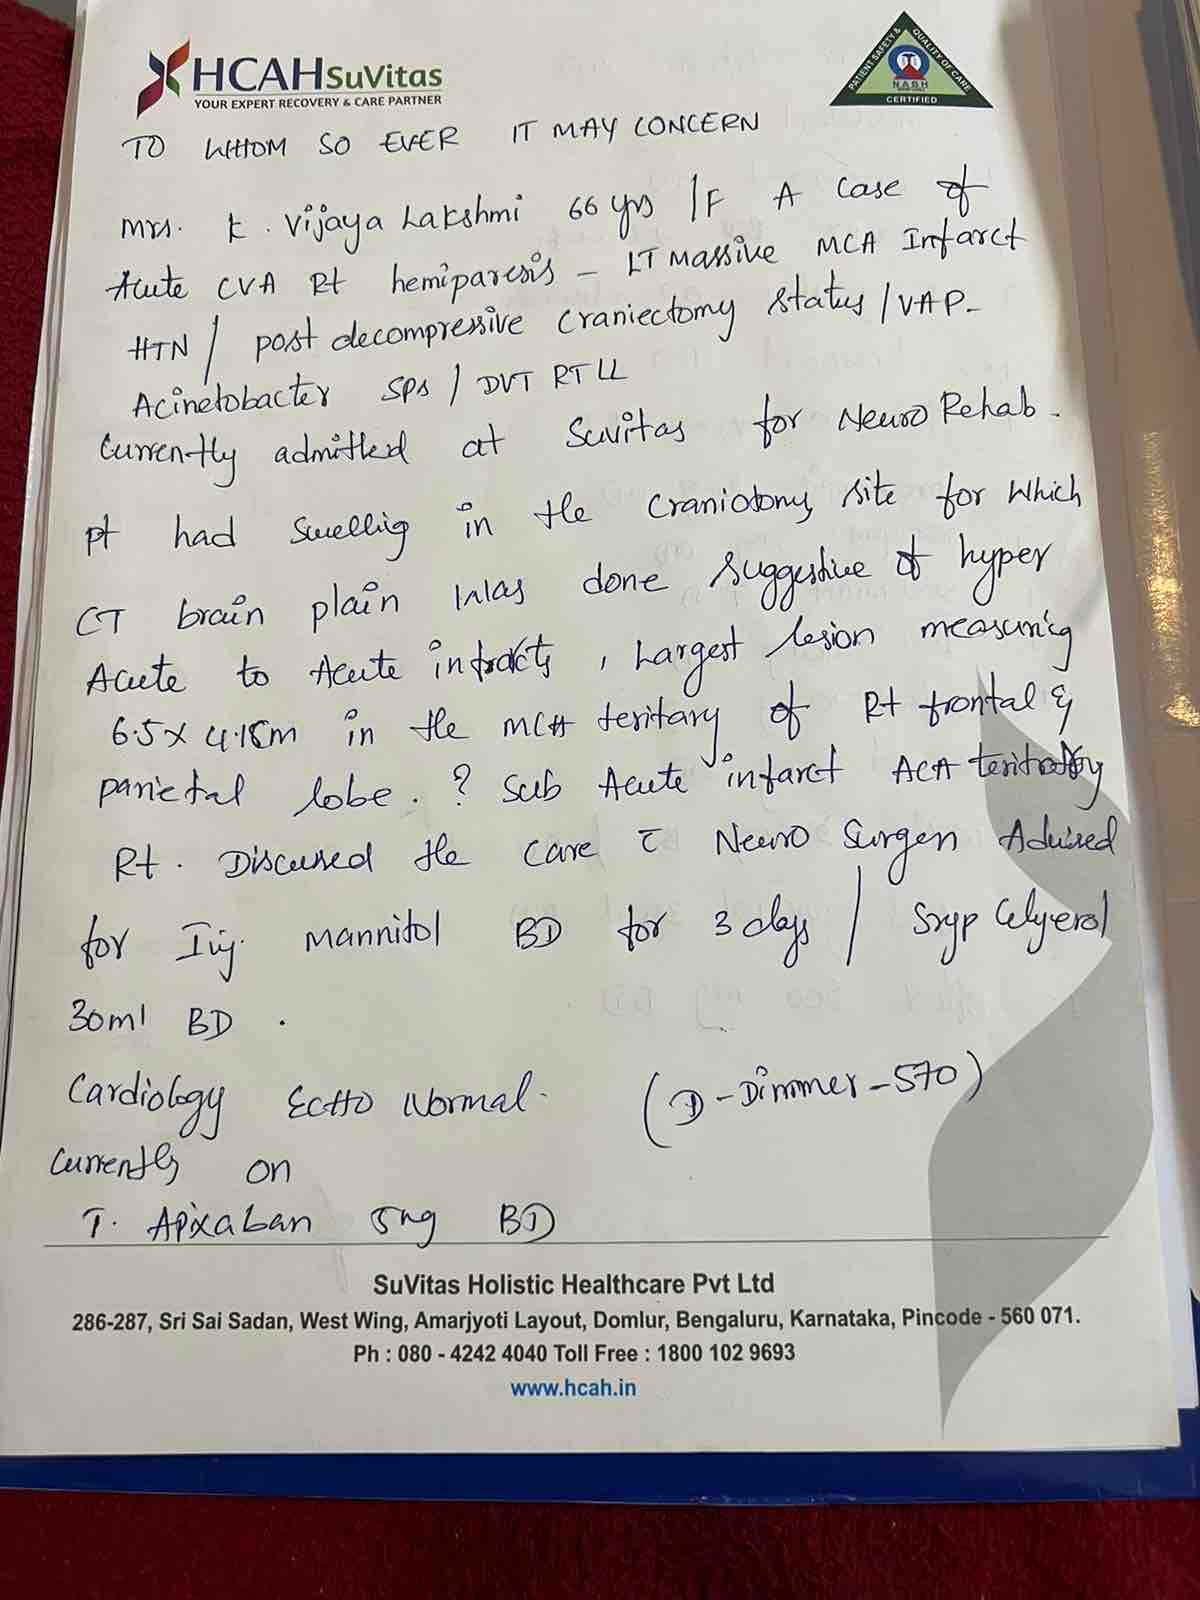 HCAH SuVitas
YOUR EXPERT RECOVERY & CARE PARTNER
PATIENT SAFETY & QUALITY OF CARE
NABH
CERTIFIED
TO WHOM SO EVER IT MAY CONCERN
Mrs. K. Vijaya Lakshmi 66 yrs /F A Case of
Acute CVA Rt hemiparesis - LT Massive MCA Infarct
HTN / post decompressive Craniectomy status / VAP-
Acinetobacter SPs / DVT RT LL
Currently admitted at Suvitas for Neuro Rehab.
pt had Swellig in the Craniotomy site for Which
CT brain plain was done suggestive of hyper
Acute to Acute infracts, Largest lesion measuring
6.5 x 4.1cm in the MCA teritary of Rt frontal &
parietal lobe. ? Sub Acute infarct ACA teritory
Rt. Discused the Care c Neuro Surgen Adviced
for Inj. Mannitol BD for 3 days / Syp Glyerol
30ml BD.
Cardiology ECHO Normal. (D-Dimmer-570)
Currently on
T. Apixaban 5mg BD
SuVitas Holistic Healthcare Pvt Ltd
286-287, Sri Sai Sadan, West Wing, Amarjyoti Layout, Domlur, Bengaluru, Karnataka, Pincode - 560 071.
Ph : 080 - 4242 4040 Toll Free : 1800 102 9693
www.hcah.in